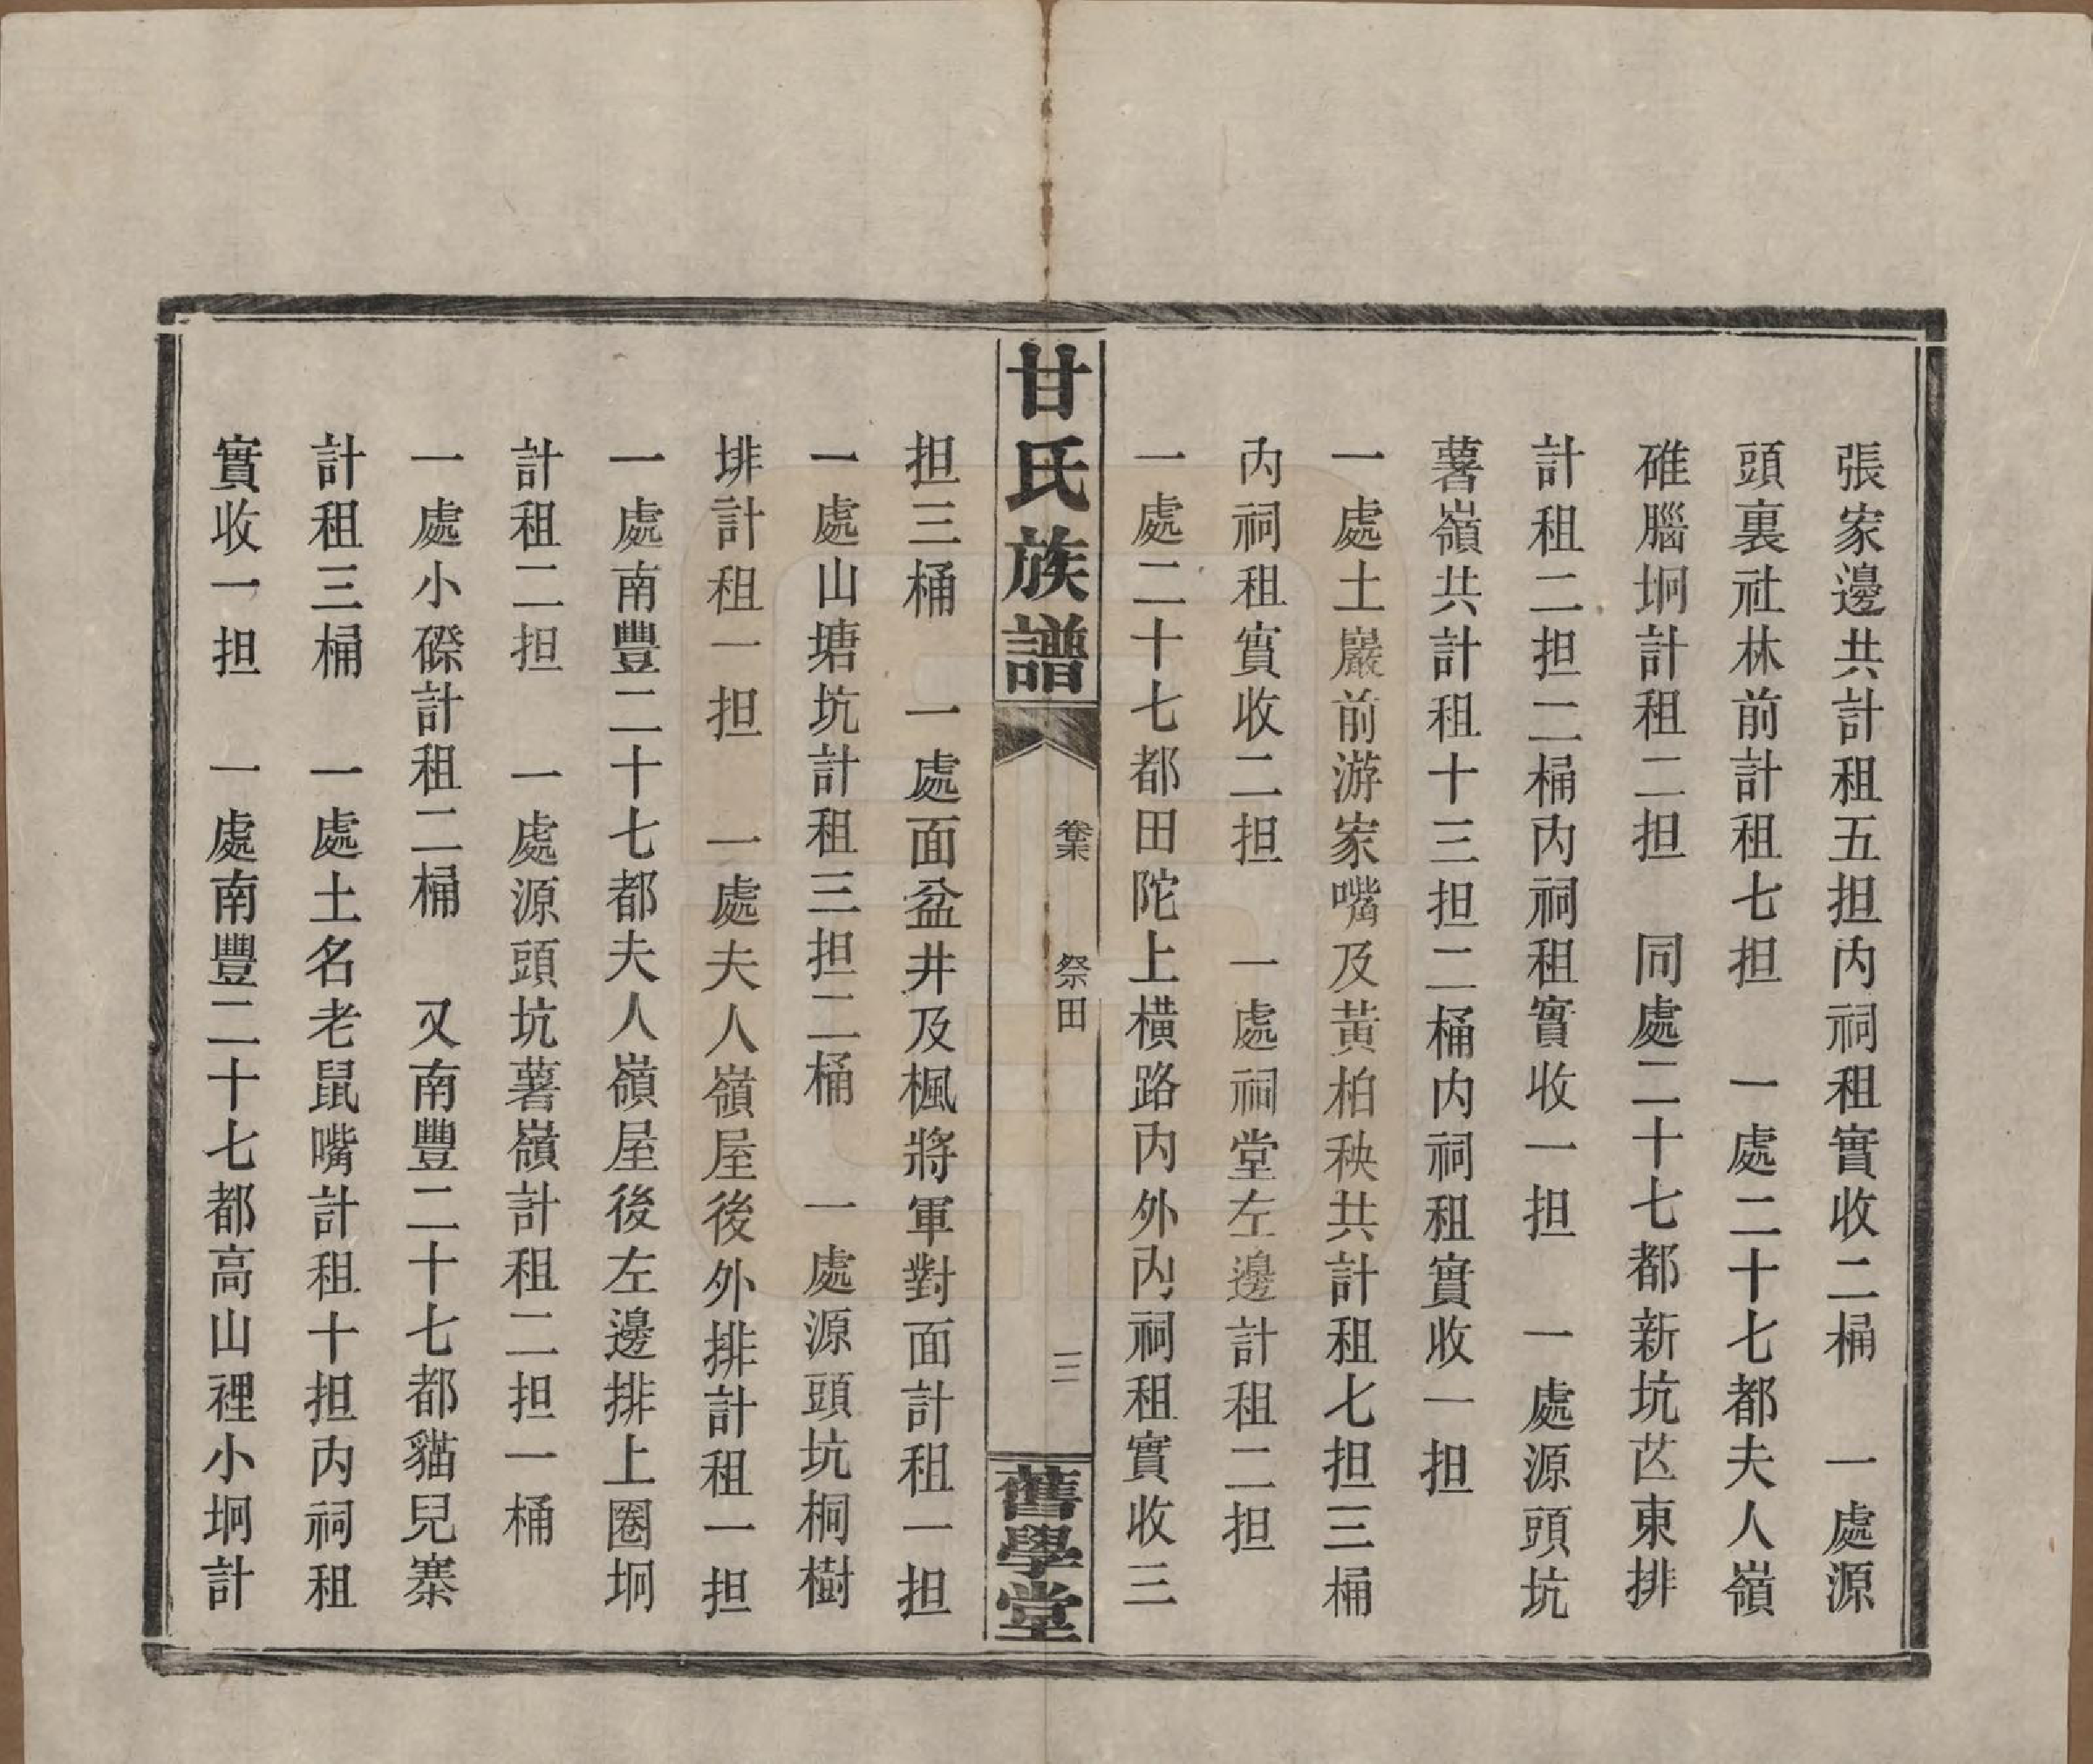 張家邊共計租五担內祠租實收二桶　一處源
頭裏社林前計租七担　一處二十七都夫人嶺
碓腦坰計租二担　同處二十七都新坑苉東排
計租二担二桶內祠租實收一担　一處源頭坑
薯嶺共計租十三担二桶內祠租實收一担
一處土巖前游家嘴及黃柏秧共計租七担三桶
內祠租實收二担　一處祠堂左邊計租二担
一處二十七都田陀上橫路內外內祠租實收三
甘氏族譜
卷末　祭田　三
舊學堂
担三桶　一處面盆井及楓將軍對面計租一担
一處山塘坑計租三担二桶　一處源頭坑桐樹
排計租一担　一處夫人嶺屋後外排計租一担
一處南豐二十七都夫人嶺屋後左邊排上圈坰
計租二担　一處源頭坑薯嶺計租二担一桶
一處小磜計租二桶　又南豐二十七都貓兒寨
計租三桶　一處土名老鼠嘴計租十担內祠租
實收一担　一處南豐二十七都高山裡小坰計